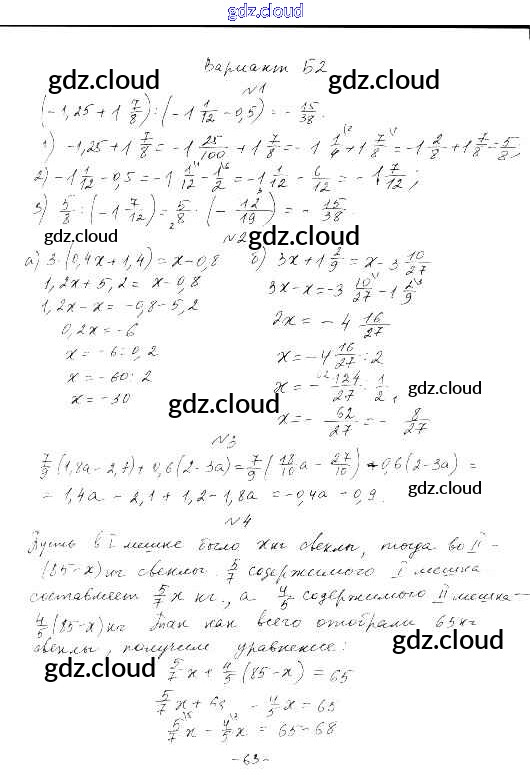 gdz.cloud
Вариант Б2
gdz.cloud gdz.cloud
№1
(-1,25 + 1 7/8) : (-1 1/12 - 0,5) = - 15/38.
1) -1,25 + 1 7/8 = -1 25/100 + 1 7/8 = -1 1/4 + 1 7/8 = -1 2/8 + 1 7/8 = 5/8;
2) -1 1/12 - 0,5 = -1 1/12 - 1/2 = -1 1/12 - 6/12 = -1 7/12;
3) 5/8 : (-1 7/12) = 5/8 · (- 12/19) = - 15/38.
gdz.cloud gdz.cloud
№2
а) 3·(0,4x+1,4) = x-0,8 б) 3x + 1 2/9 = x - 3 10/27
1,2x + 5,2 = x - 0,8 3x - x = -3 10/27 - 1 2/9
1,2x - x = -0,8 - 5,2 2x = -4 16/27
0,2x = -6 x = -4 16/27 : 2
x = -6 : 0,2 x = - 124/27 · 1/2
x = -60 : 2 gdz.cloud
x = -30 x = - 62/27 = - 8/27
gdz.cloud
№3
7/9 (1,8a - 2,7) + 0,6(2 - 3a) = 7/9 (18/10 a - 27/10) + 0,6(2 - 3a) =
= 1,4a - 2,1 + 1,2 - 1,8a = -0,4a - 0,9.
gdz.cloud
№4
Пусть в I мешке было x кг свеклы, тогда во II -
(85-x) кг свеклы. 5/7 содержимого I мешка
составляет 5/7 x кг, а 4/5 содержимого II мешка -
4/5 (85-x) кг. Так как всего отобрали 65 кг
свеклы, получим уравнение:
gdz.cloud gdz.cloud
5/7 x + 4/5 (85-x) = 65
gdz.cloud
5/7 x + 68 - 4/5 x = 65
5/7 x - 4/5 x = 65 - 68
gdz.cloud gdz.cloud
- 63 -